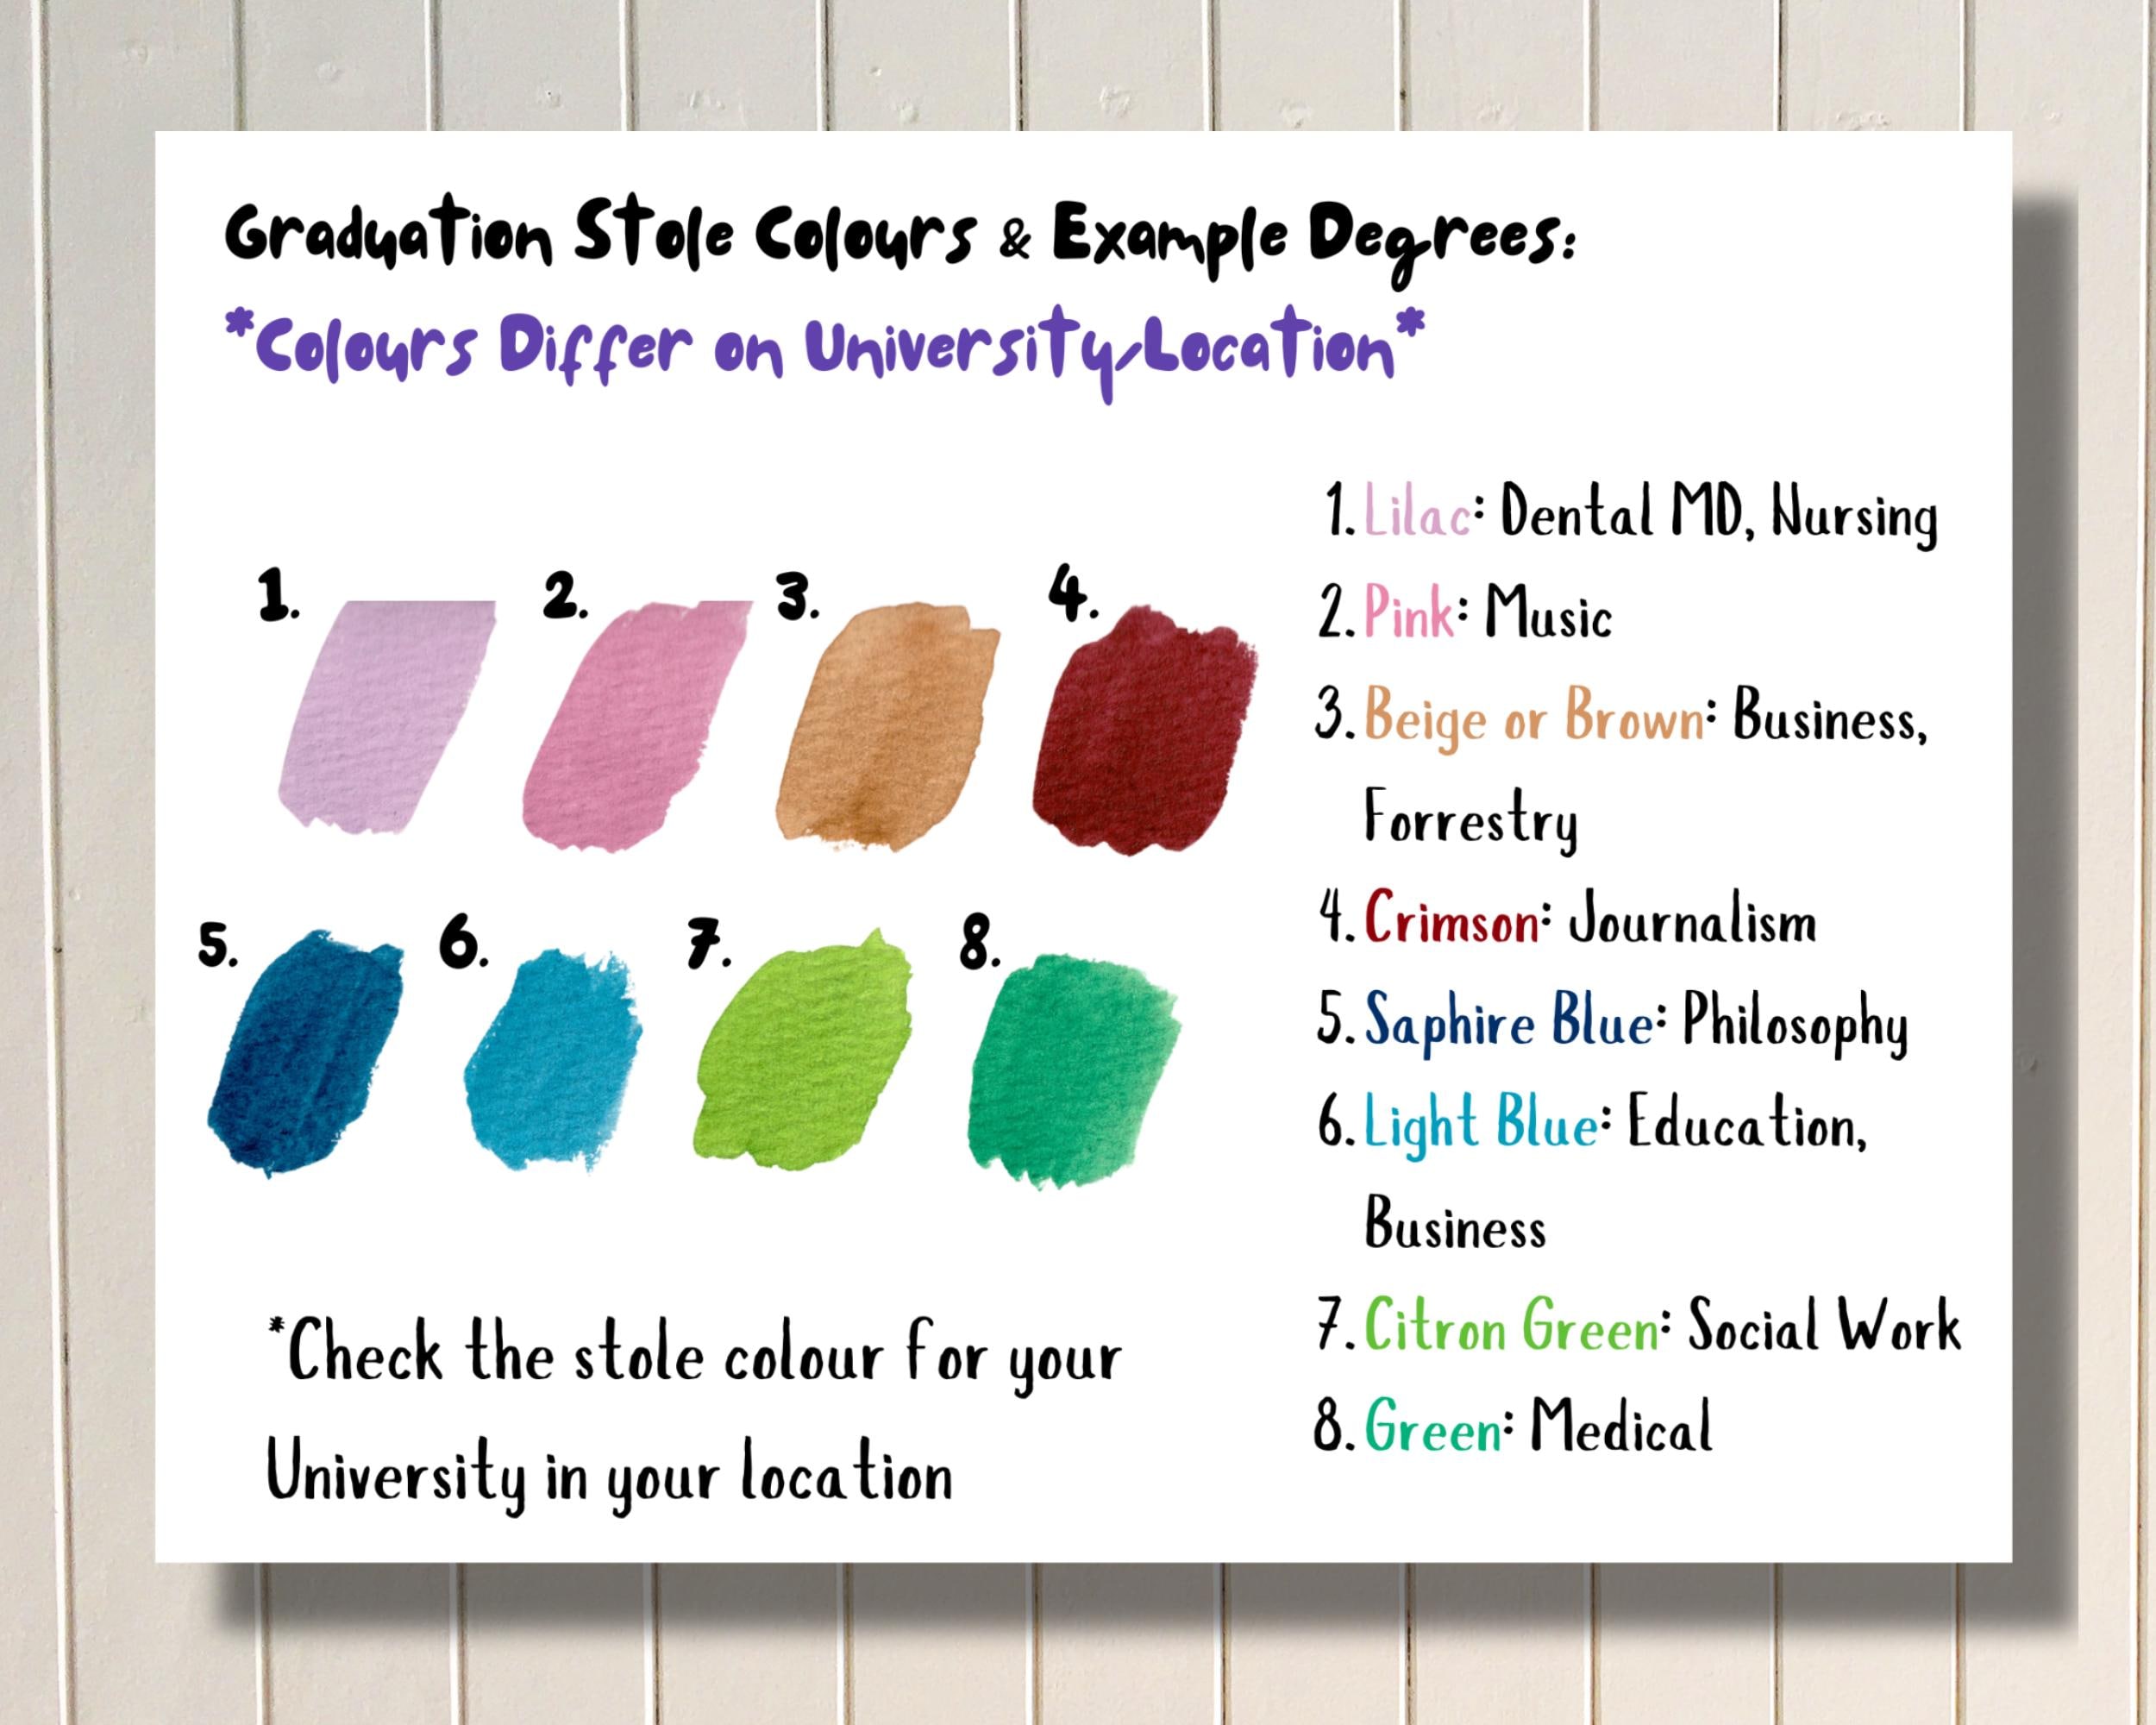 Graduation Stole Colours & Example Degrees:
*Colours Differ on University/Location*
1.
2.
3.
4.
5.
6.
7.
8.
1. Lilac: Dental MD, Nursing
2. Pink: Music
3. Beige or Brown: Business,
Forrestry
4. Crimson: Journalism
5. Saphire Blue: Philosophy
6. Light Blue: Education,
Business
7. Citron Green: Social Work
8. Green: Medical
*Check the stole colour for your
University in your location